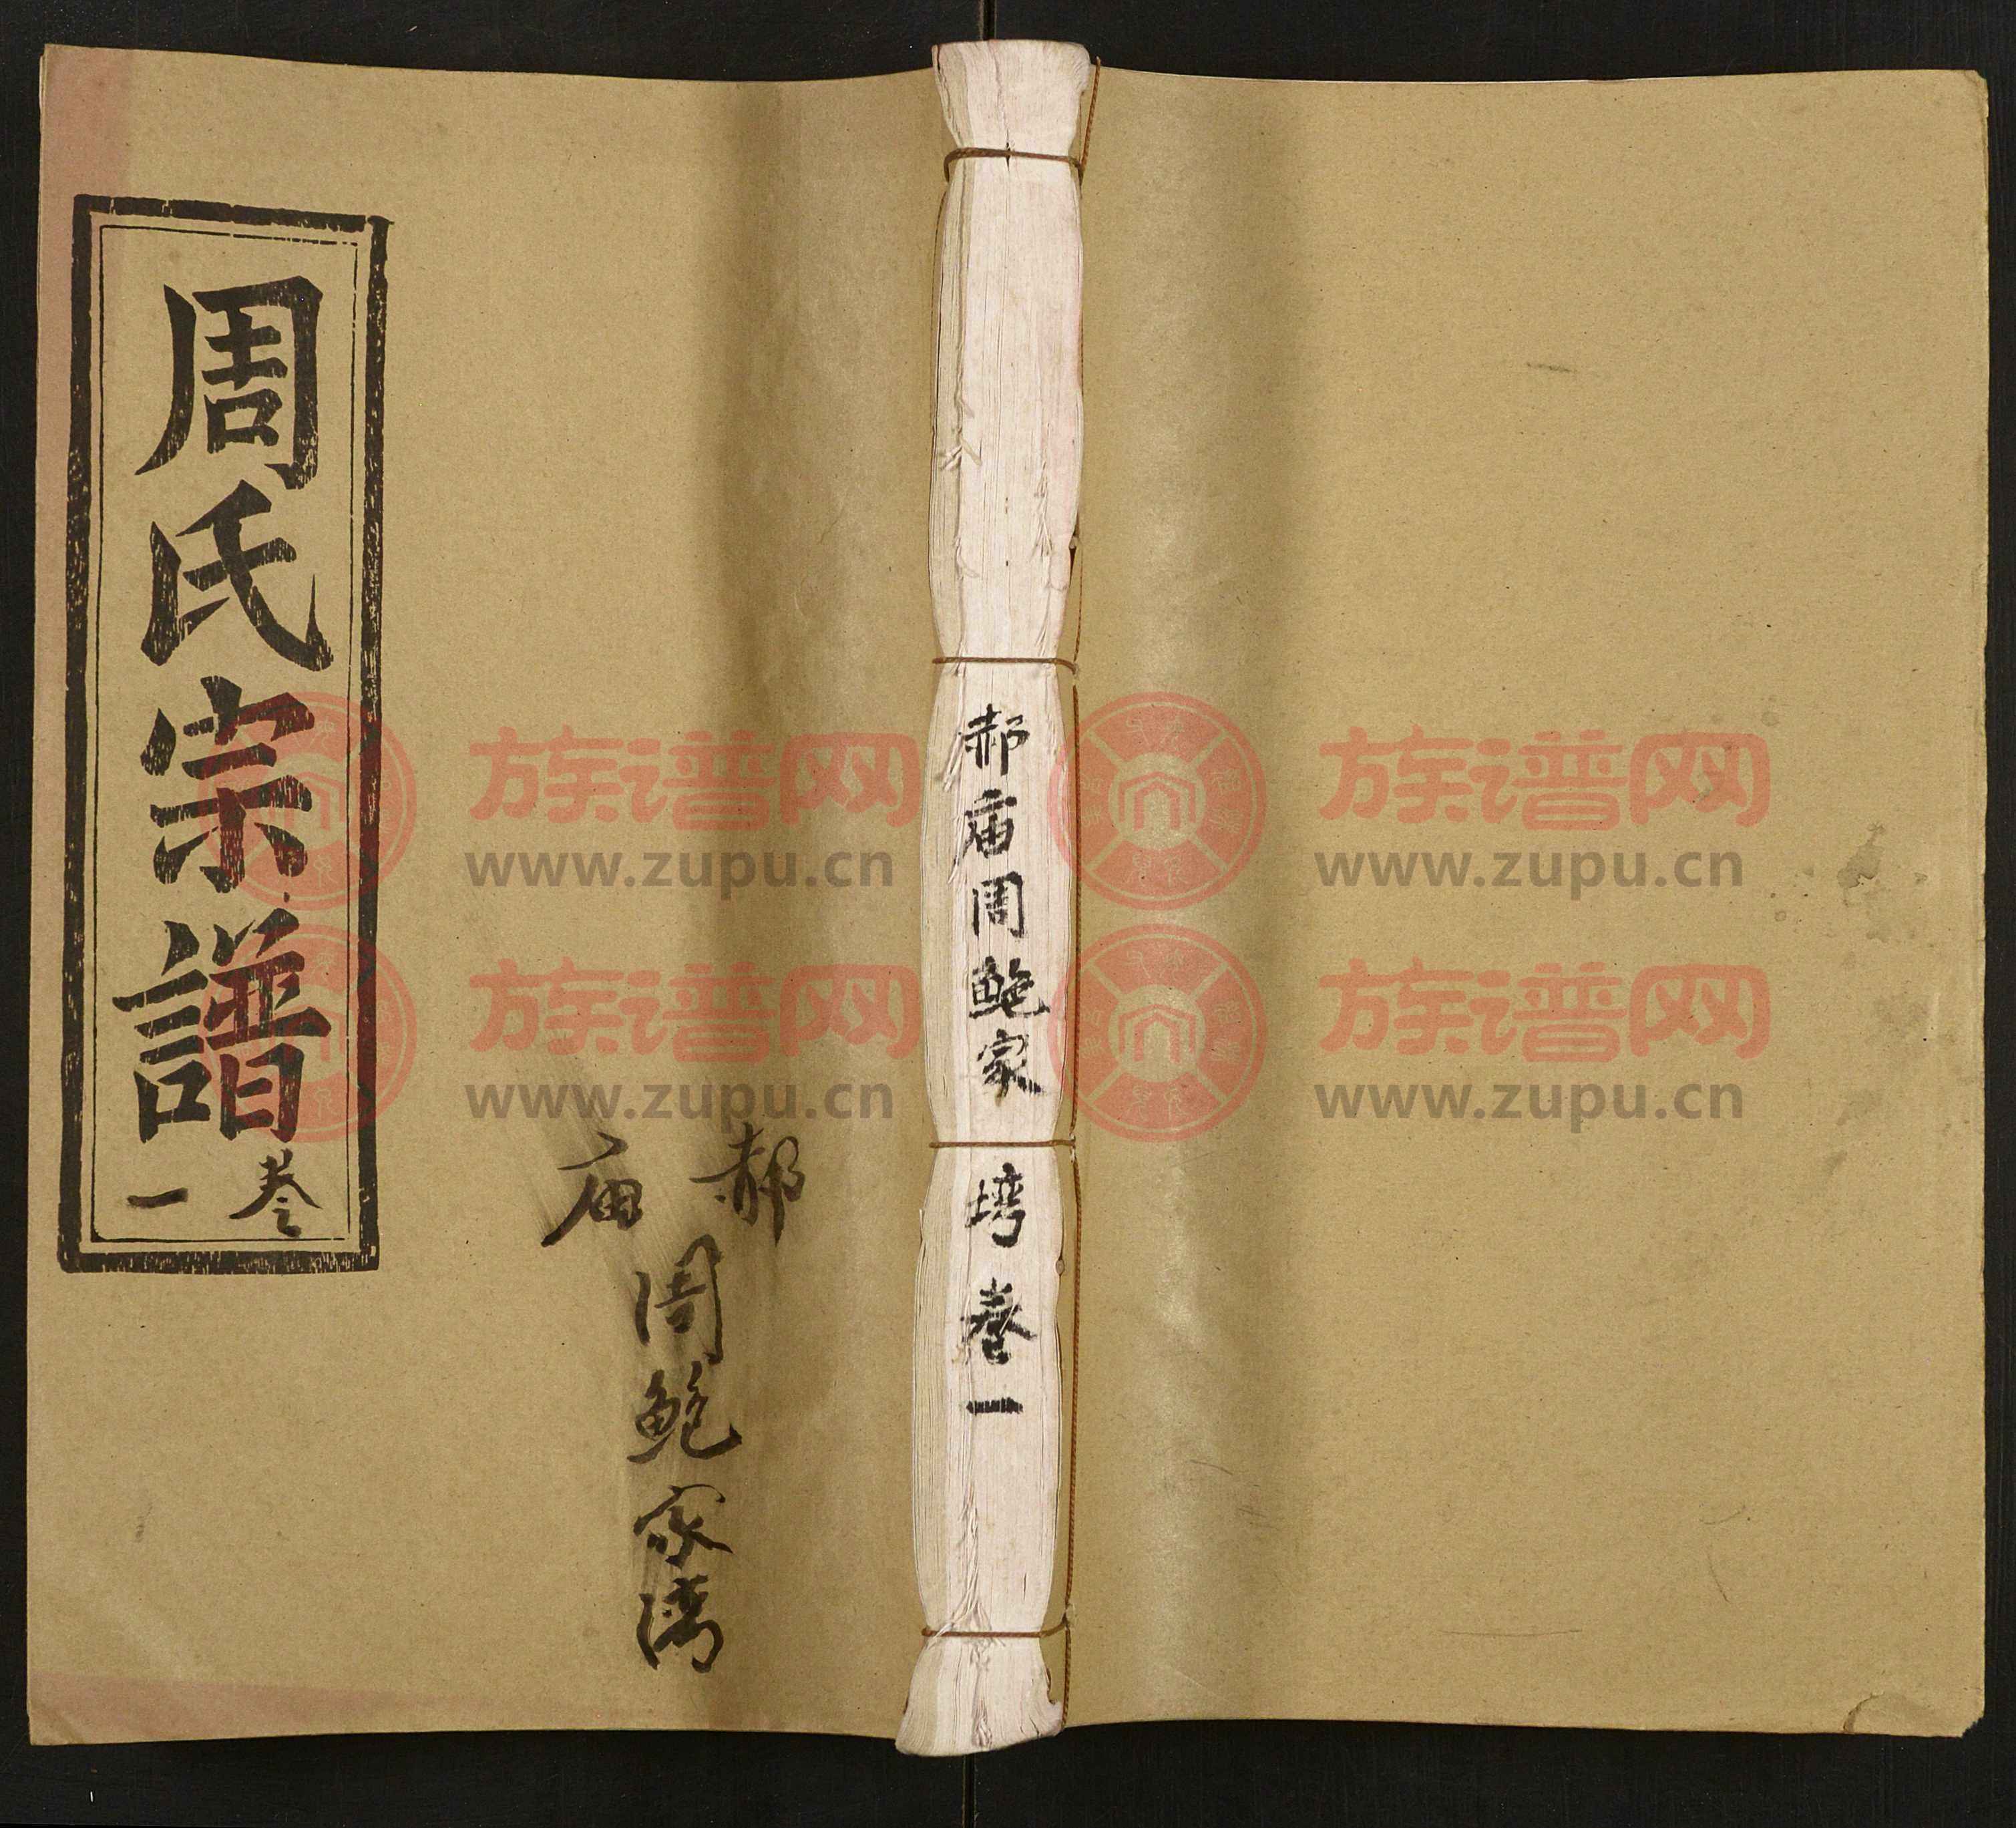 周氏宗譜
卷一
郝庙
周鲍家湾
郝庙周鲍家塆卷一
族谱网
www.zupu.cn
族谱网
www.zupu.cn
族谱网
www.zupu.cn
族谱网
www.zupu.cn